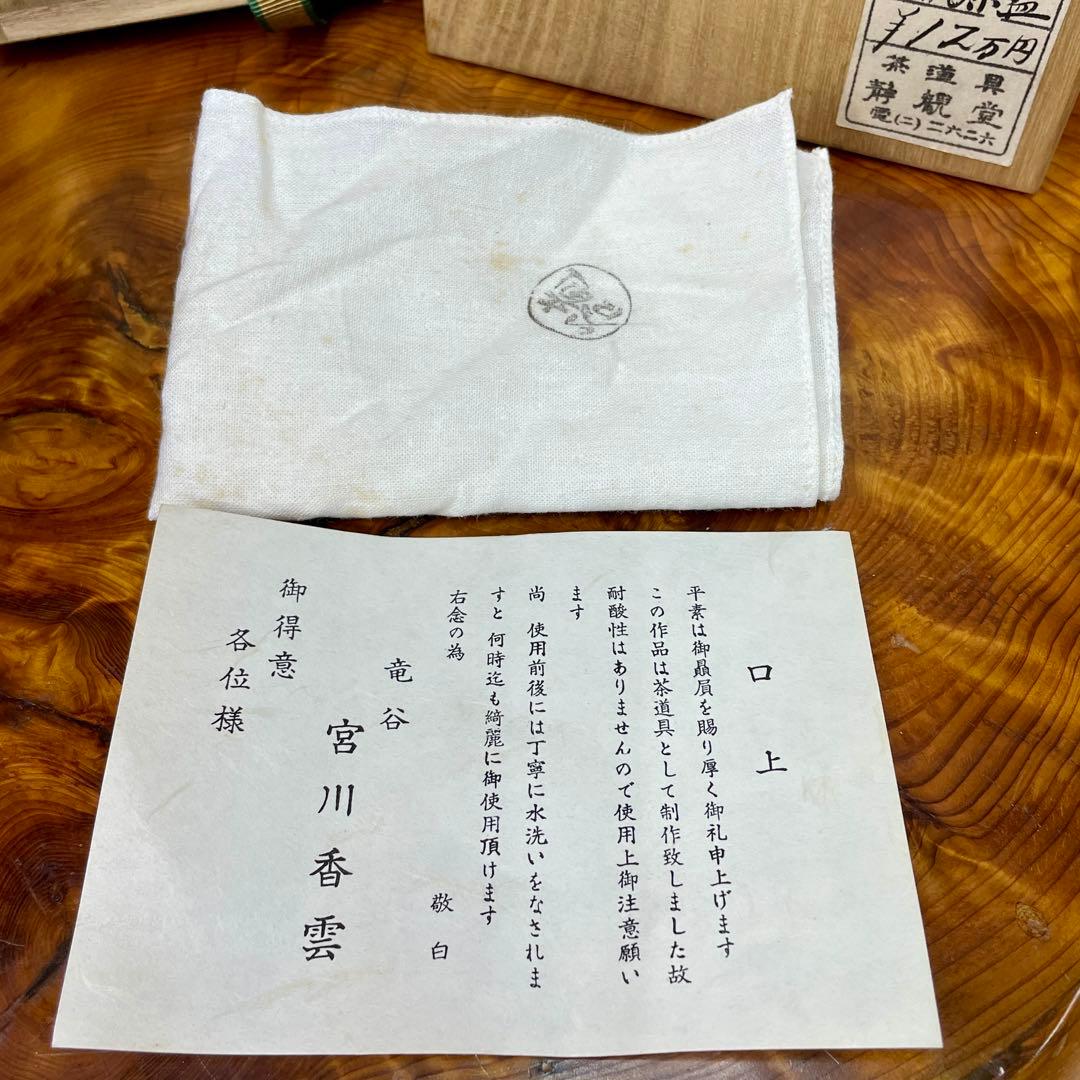 ¥12万円
茶道具
静観堂
電(二)二六二六
口上
平素は御贔屓を賜り厚く御礼申上げます
この作品は茶道具として制作致しました故
耐酸性はありませんので使用上御注意願い
ます
尚 使用前後には丁寧に水洗いをなされま
すと 何時迄も綺麗に御使用頂けます
右念の為
敬白
竜谷
宮川香雲
御得意
各位様